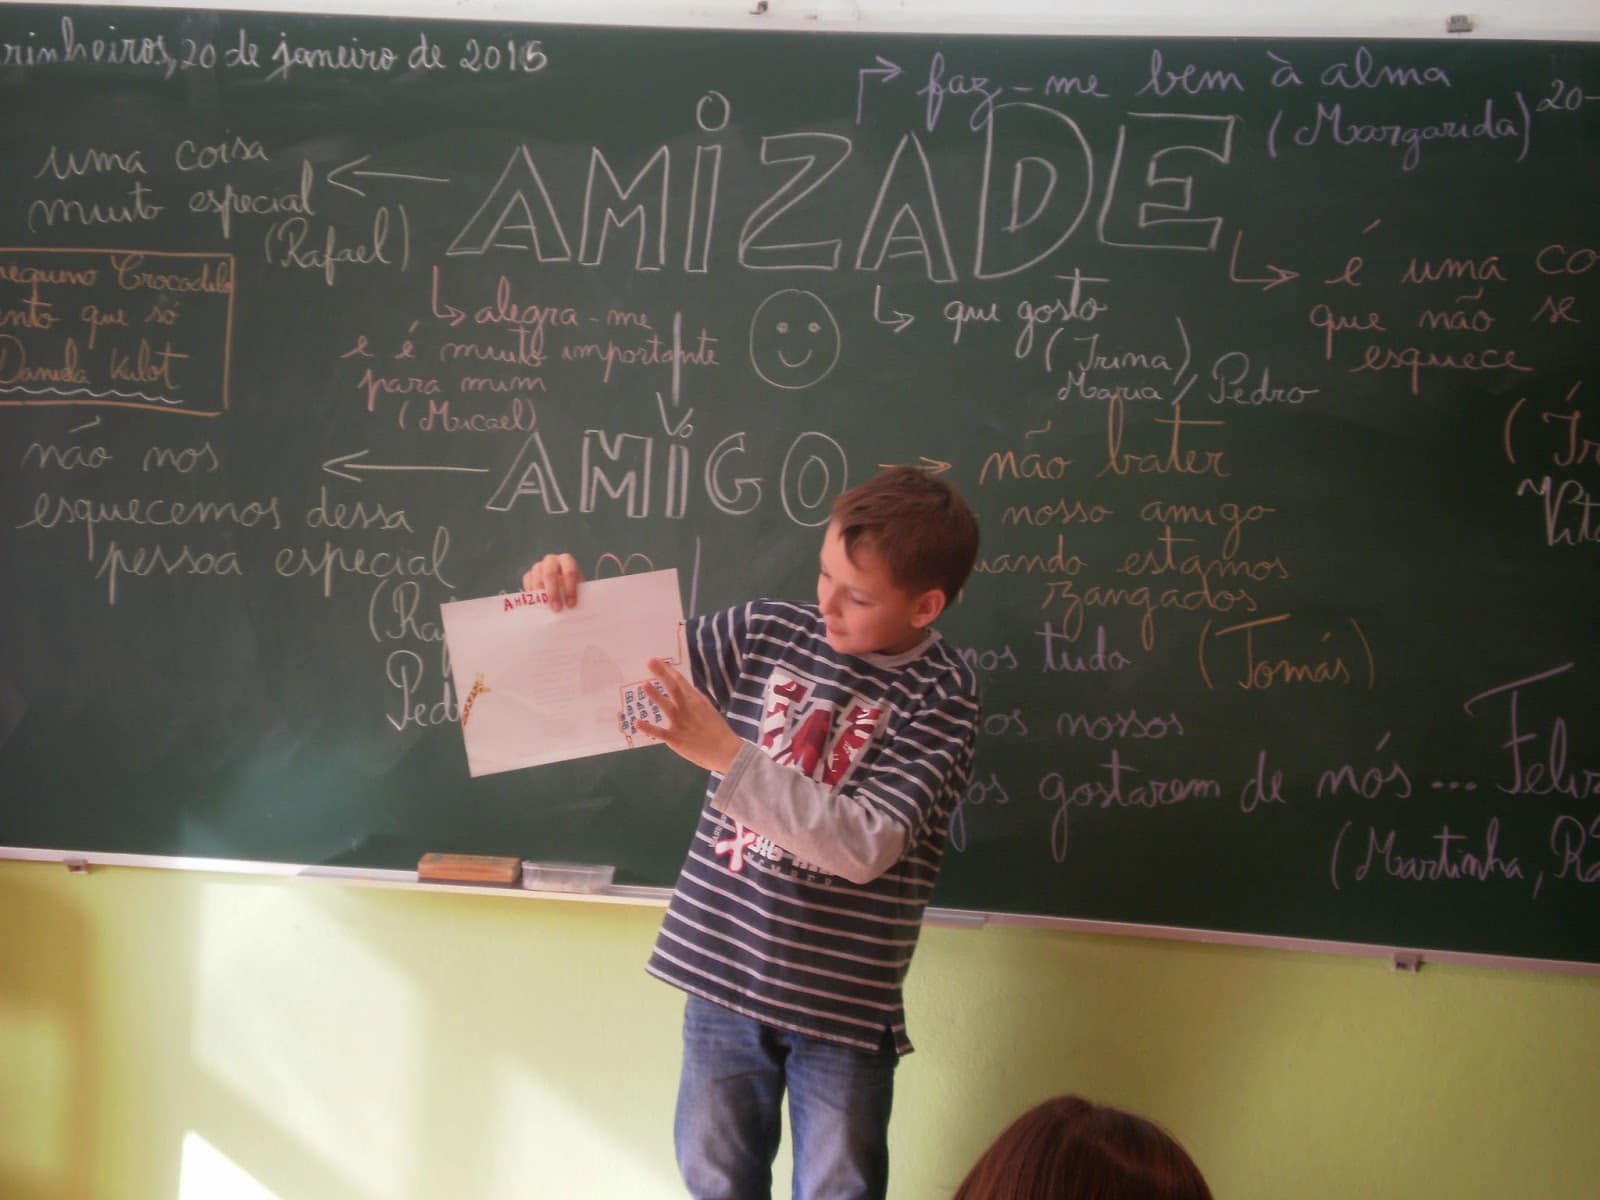 rinheiros, 20 de janeiro de 2015
faz-me bem à alma
(Margarida)
20-
AMIZADE
uma coisa
muito especial
(Rafael)
pequeno Crocodilo
que só
Daniela Kulot
alegra-me
e é muito importante
para mim
(Micael)
que gosto
(Irina)
Maria / Pedro
é uma co
que não se
esquece
AMIGO
não nos
esquecemos dessa
pessoa especial
(Ra
Ped
não bater
nosso amigo
uando estamos
zangados
(Tomás)
mos tudo
os nossos
gos gostarem de nós ...
(Martinha, Ra
AMIZAD